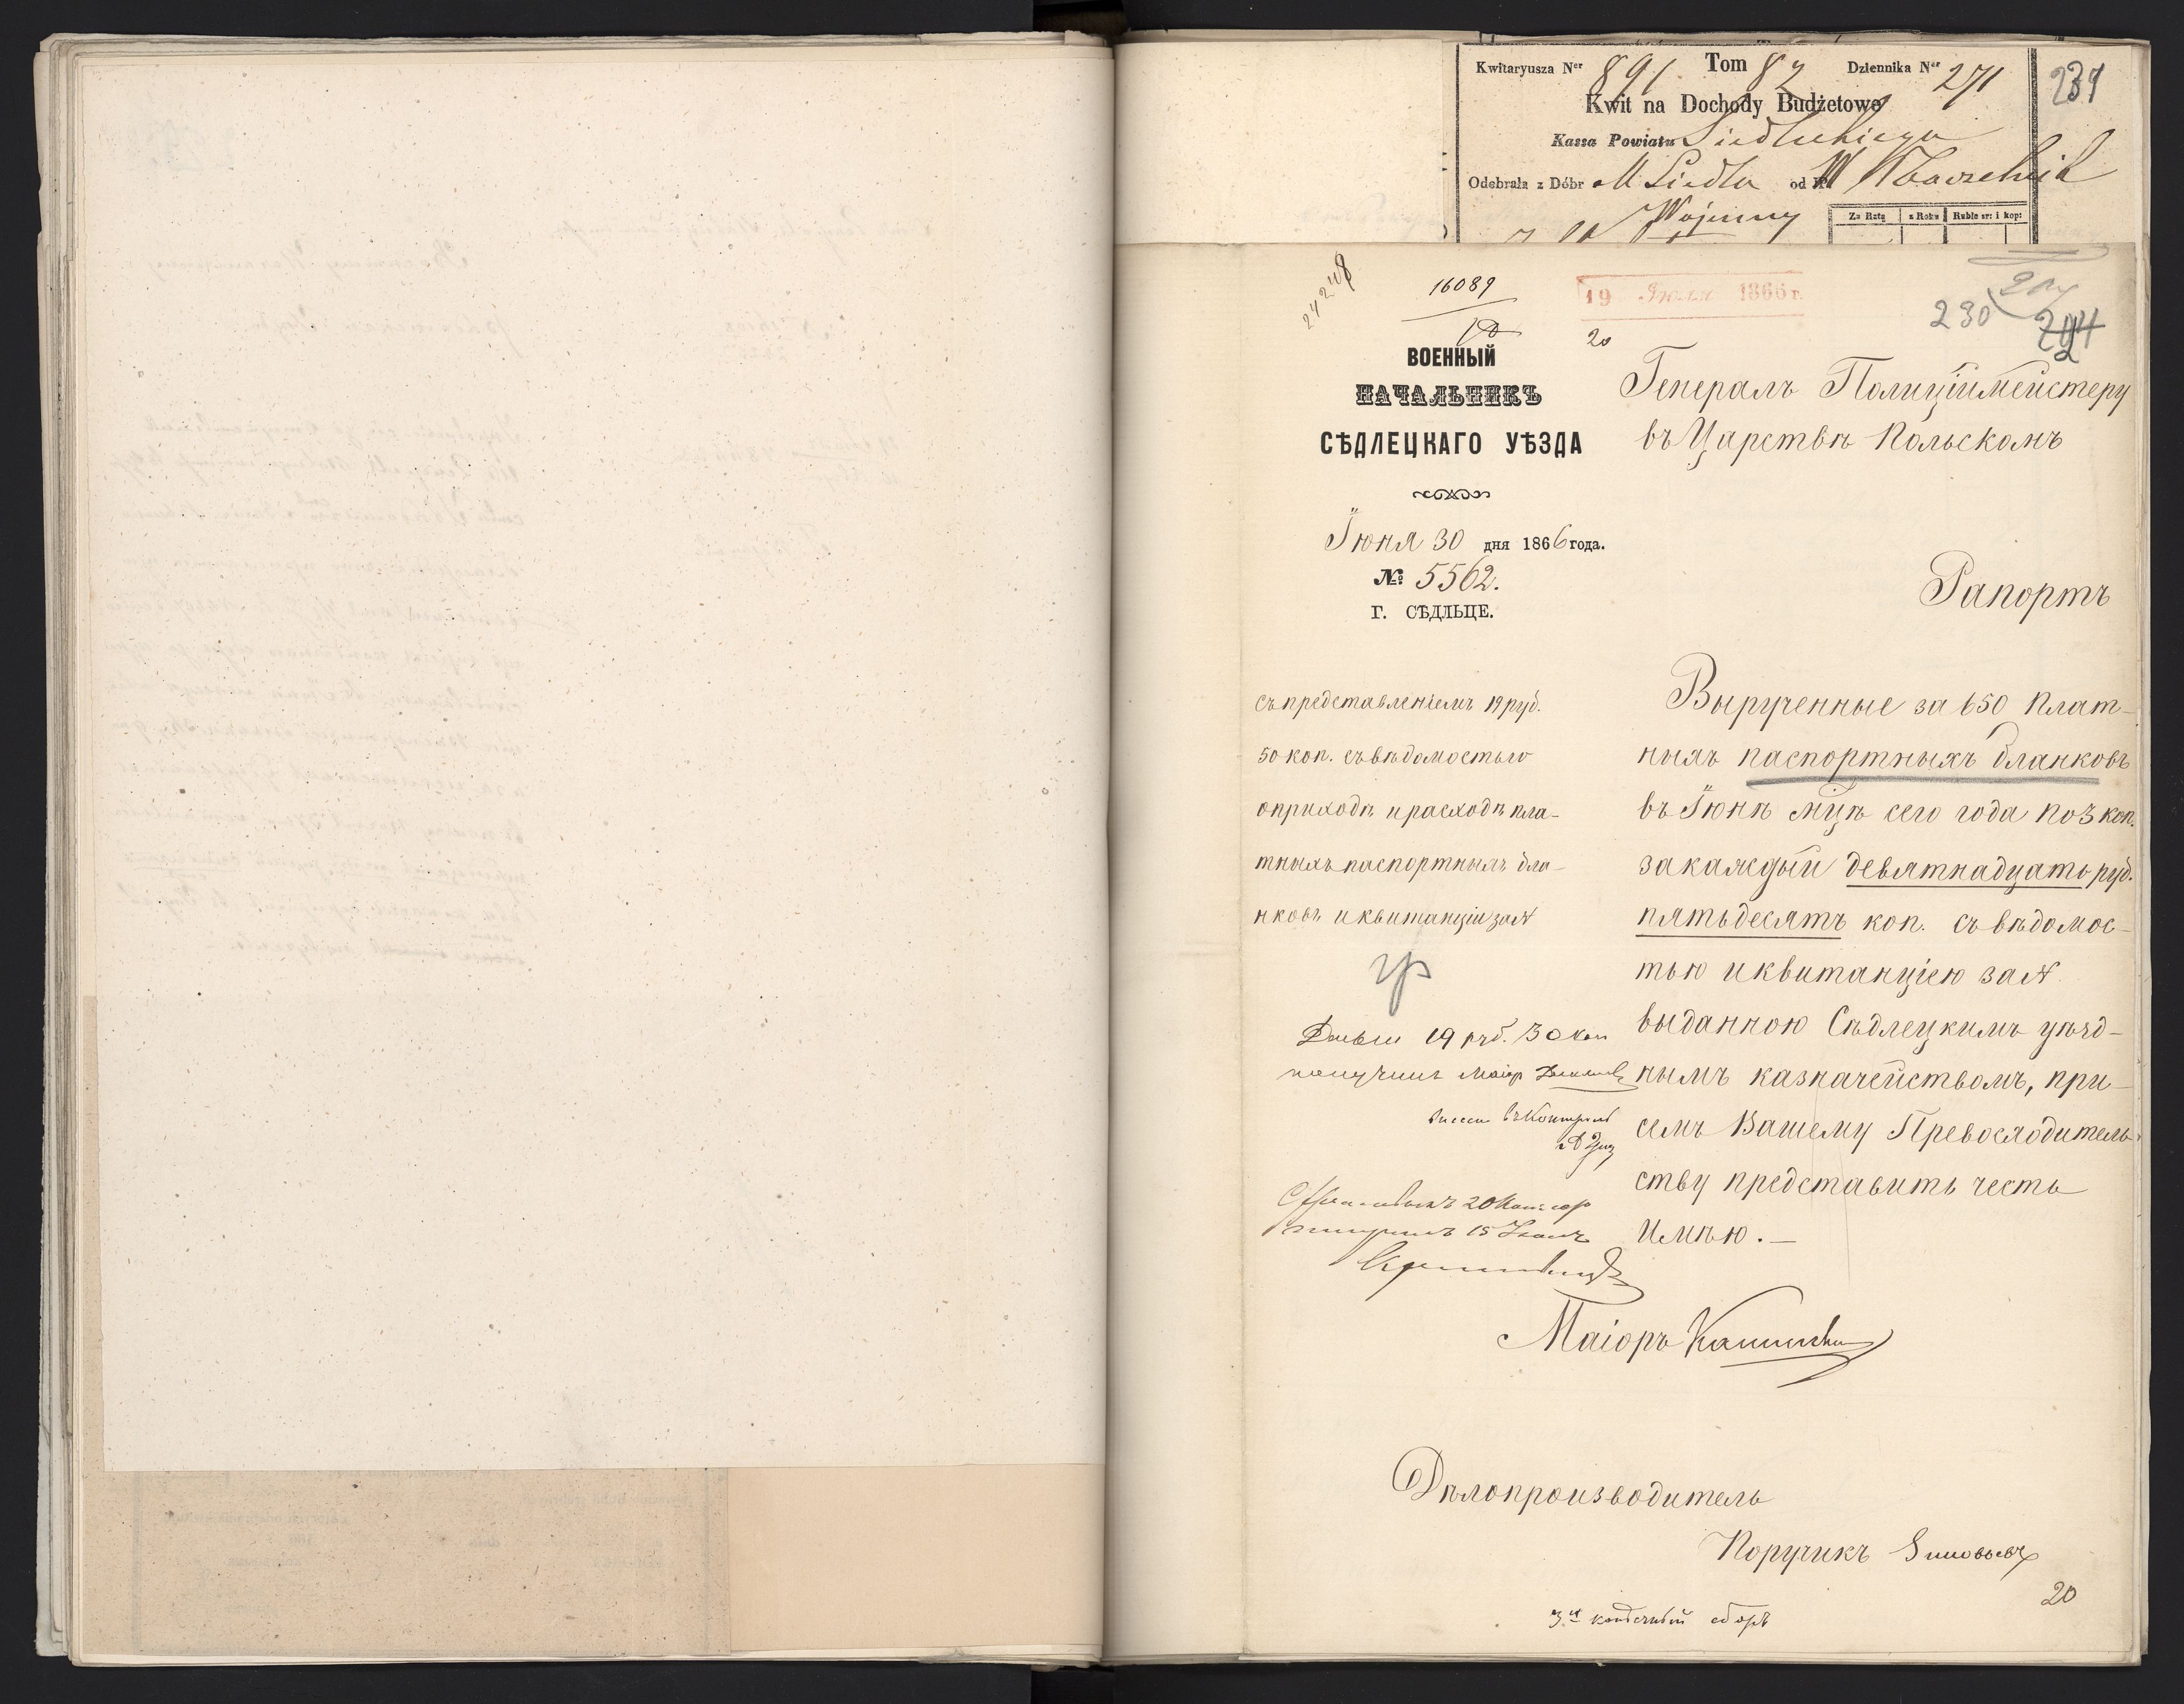 Kwitaryusza Nᵉʳ 891 Tom 82 Dziennika Nᵉʳ 271
231
Kwit na Dochody Budżetowe
Kassa Powiatu Siedleckiego
Odebrała z Dóbr M Siedlce od
Wojenny
Za Ratę z Roku Ruble sr: i kop:
24248
16089
19 Июля 1866 г.
230
20
ВОЕННЫЙ
НАЧАЛЬНИКЪ
СѢДЛЕЦКАГО УѢЗДА
Іюня 30 дня 1866 года.
№ 5562.
Г. СѢДЛЬЦЕ.
Генералъ Полиціймейстеру
въ Царствѣ Польскомъ
Рапортъ
съ представленіемъ 19 руб.
50 коп. съ вѣдомостью
о приходѣ и расходѣ пла-
тныхъ паспортныхъ бла-
нковъ и квитанціи за №
Деньги 19 руб. 30 коп
получилъ Маіоръ
Вырученные за 650 плат-
ныхъ паспортныхъ бланковъ
въ Іюнѣ мцѣ сего года по 3 коп.
за каждый девятнадцать руб.
пятьдесятъ коп. съ вѣдомос-
тью и квитанціею за №
выданною Сѣдлецкимъ уѣзд-
нымъ казначействомъ, при
семъ Вашему Превосходитель-
ству представить честь
имѣю.—
Маіоръ
Дѣлопроизводитель
Поручикъ Зиновьевъ
20
3х копѣечный сборъ